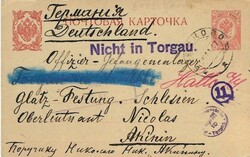 Германия
ПОЧТОВАЯ КАРТОЧКА
Deutschland.
Nicht in Torgau.
Offizier-Gefangenenlager
Halle a/S
11
Glatz-Festung-Schlesien
Oberleutnant Nicolas
Akinin
Поручику Николаю Ник. Акинину